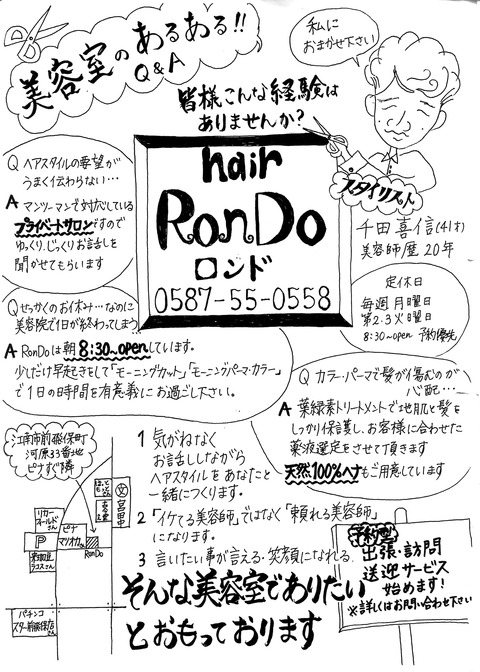 美容室のあるある!!
Q&A
私に
おまかせ下さい
皆様こんな経験は
ありませんか?
Q ヘアスタイルの要望が
うまく伝わらない…
A マンツーマンで対応している
プライベートサロンですので
ゆっくり、じっくりお話しを
聞かせてもらいます
hair
RonDo
ロンド
0587-55-0558
スタイリスト
千田 喜信(41才)
美容師歴 20年
定休日
毎週月曜日
第2.3火曜日
8:30~open 予約優先
Qせっかくのお休み…なのに
美容院で1日が終わってしまう…
A RonDoは朝8:30~openしています。
少しだけ早起きをして「モーニングカット」「モーニングパーマ・カラー」
で1日の時間を有意義にお過ごし下さい。
Q カラー・パーマで髪が傷むのが
心配…
A 葉緑素トリートメントで地肌と髪を
しっかり保護し、お客様に合わせた
薬液選定をさせて頂きます
天然100%ヘナもご用意しています
江南市前飛保町
河原33番地
ピナすぐ隣
リカー
ワールドさん
P
ピナ
マツオカ
RonDo
文 宮田中
パチンコ
スター前飛保店さん
1 気がねなく
お話ししながら
ヘアスタイルをあなたと
一緒につくります。
2「イケてる美容師」ではなく「頼れる美容師」
になります。
3 言いたい事が言える・笑顔になれる
そんな美容室でありたい
とおもっております
予約制
出張・訪問
送迎サービス
始めます!
※詳しくはお問い合わせ下さい